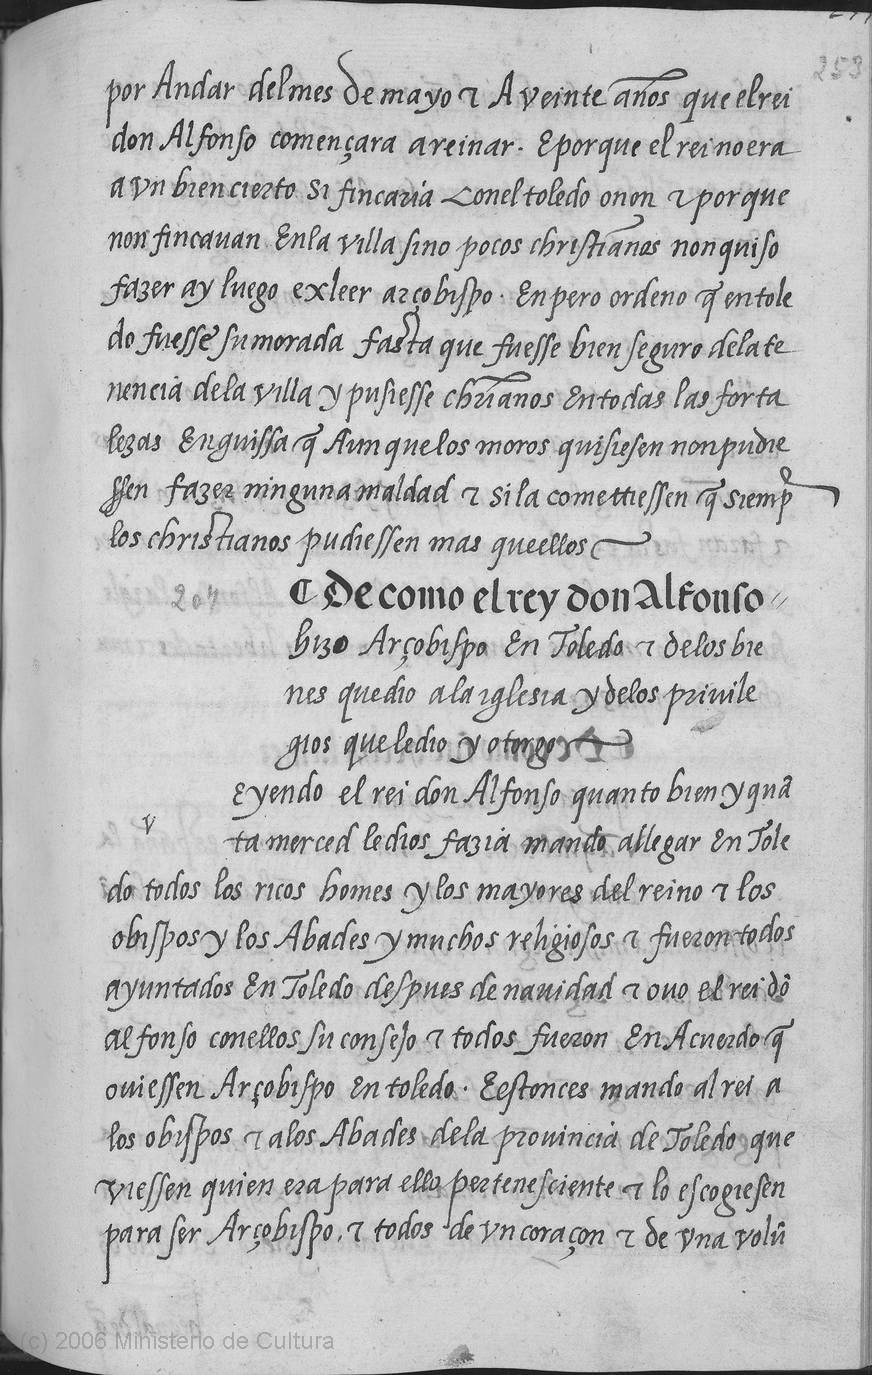 253
por Andar del mes de mayo τ A veinte años que el rei
don Alfonso començara a reinar. E porque el rei no era
a vn bien cierto si fincaria con el toledo o non τ porque
non fincauan En la villa sino pocos christianos non quiso
fazer ay luego exleer arçobispo. Enpero ordeno q̃ en tole
do fuesse su morada fasta que fuesse bien seguro de la te
nencia de la villa y pusiesse chr̃ianos En todas las forta
lezas En guissa q̃ Aunque los moros quisiesen non pudie
ssen fazer ninguna maldad τ si la comettiessen q̃ siemp̃
los christianos pudiessen mas que ellos
204
¶ De como el rey don Alfonso
hizo Arçobispo En Toledo τ de los bie
nes que dio a la iglesia y de los priuile
gios que le dio y otorgo
Eyendo el rei don Alfonso quanto bien y quã
v
ta merced le dios fazia mando allegar En Tole
do todos los ricos homes y los mayores del reino τ los
obispos y los Abades y muchos religiosos τ fueron todos
ayuntados En Toledo despues de nauidad τ ouo el rei dõ
alfonso con ellos su consejo τ todos fueron En Acuerdo q̃
ouiessen Arçobispo En toledo. E estonces mando al rei a
los obispos τ a los Abades de la prouincia de Toledo que
viessen quien era para ello pertenesciente τ lo escogiesen
para ser Arçobispo, τ todos de vn coraçon τ de vna volũ
(c) 2006 Ministerio de Cultura